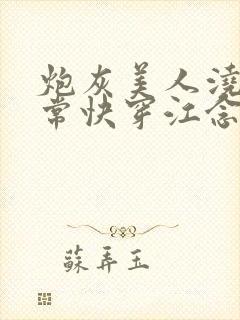 炮灰美人澆
常快穿江念
蘇弄玉